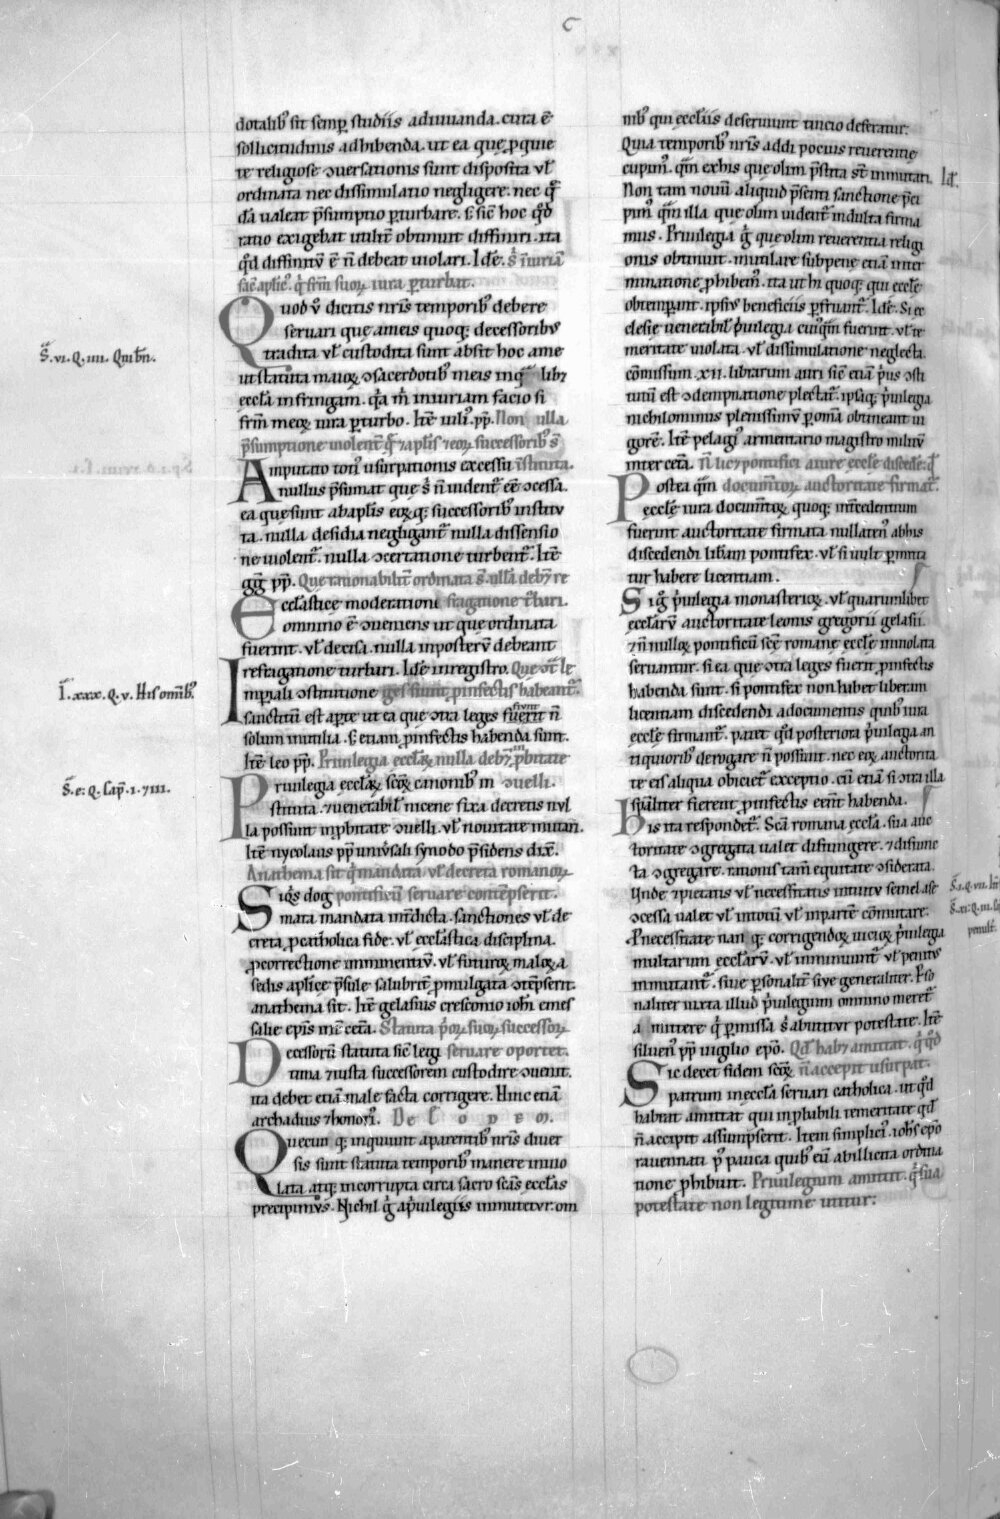 C
dotalib᷒ sit semꝑ studiis adiuuanda. cura ē
sollicitudinis adhibenda. ut ea quę ꝑ quie
te religiose ↄuersationis sunt disposita vł
ordinata nec dissimulatio negligere. nec
ualeat p̄sumptio ꝑturbare. s; sic̄ hoc qd̄
ratio exigebat utilit̄ obtinuit diffiniri. ita
qd̄ diffinitū ē n̄ debeat uiolari. Idē. s̄ iniuriā
sac̄ aplic̄. q̄ frm̄ suoꝝ iura ꝑturbat.
Quod v̄ dicitis nr̄is temporib᷒ debere
seruari quę a meis quoq; decessorib᷒
tradita vł custodita sunt absit hoc a me
ut statuta maioꝝ ↄsacerdotib᷒ meis in q lib;
eccła infringam. qa m̄ iniuriam facio si
frm̄ meoꝝ iura ꝑturbo. Itē iuli᷒. pp̄. Non ulla
p̄sumptione uiolent̄ q̄ ⁊ aplīs ⁊ eoꝝ successorib᷒ s̄
Amputato toti᷒ usurpationis excessu istituta.
nullus p̄sumat que s̄ n̄ uident̄ eē ↄcessa.
ea que sunt ab aplīs eoꝝ q; successorib᷒ institu
ta. nulla desidia negligant̄ nulla dissensio
ne uiolent̄. nulla ↄcertatione turbent̄. Itē
gg̅ pp̄. Que rationabilit̄ ordinata s̄. ulła deb; re
Eccłastice moderationi fragatione t̄bari.
omnino ē ↄueniens ut que ordinata
fuerint. vł decisa. nulla in posterū debeant
refragatione turbari. Idē in registro. Que ↄt̄ le
Imꝑiali ↄstitutione ges fiunt ꝓ infectis habeant̄.
sanctitū est aꝑte ut ea que ↄtra leges fiunt fuerit n̄
solum inutilia. s; etiam ꝓ infectis habenda sint.
Itē leo pp̄. Priuilegia eccłaꝝ nulla deb; in ꝓbitate
Priuilegia eccłaꝝ scōꝝ canonib᷒ in ↄuelli.
stituta. ⁊ uenerabil᷒ nicene fixa decretis nul
la possunt inꝓbitate ↄuelli. vł nouitate mutari.
Itē nycolaus pp̄ uniūsali synodo p̄sidens dix̄.
Anathema sit q̄ mandata vł decreta romanoꝝ
Siq̄s dog pontificū seruare contēpserit.
mata mandata int̄dicta. sanctiones vł de
creta ꝓ catholica fide. vł eccłastica disciplina.
ꝓ correctione imminentiū. vł futuroꝝ maloꝝ a
sedis aplice p̄sule salubrit̄ ꝓmulgata ↄtēpserit.
anathema sit. Itē gelasius cresconio ioh̄i emes
salie epis mēceta. Statuta p̄oꝝ suoꝝ successoꝝ
Decessorū statuta sic̄ legi seruare oportet.
tima ⁊ iusta successorem custodire ↄuenit.
ita debet etiā male facta corrigere. Hinc etiā
archadius ⁊ honori᷒. De eodem.
Quecunq; inquiunt a parentib᷒ nr̄is diuer
sis sunt statuta temporib᷒ manere inuio
lata atq; incorrupta circa sacro scās eccłas
precipimus. Nichil g̊ a p̄uilegiis immutetur: om
nib᷒ qui eccłiis deseruiunt tuicio deferatur:
Quia temporib᷒ nr̄is addi pocius reuerentie
cupim᷒. q̄m ex his que olim p̄stita st̄ inmutari.
Non tam nouū aliquid p̄senti sanctione p̄ci
pim᷒ q̄m illa que olim uident̄ indulta firma
mus. Priuilegia g̊ que olim reuerentia religi
onis obtinuit. mutilare sub pene etiā inter
minatione ꝓhibem᷒. ita ut hi quoq; qui eccłe
obtemꝑant. ipsius beneficiis ꝑfruant̄. Idē. Si ec
clesie uenerabil᷒ p̄uilegia cuiq̄m fuerint. vł te
meritate uiolata. vł dissimulatione neglecta.
cōmissum .xii. librarum auri sic̄ etiā p̄us ↄsti
tutū est ↄdempnatione plectat̄. ipsaq; p̄uilegia
nichilominus plenissimū ꝑ omnia obtineant ui
gorē. Itē pelagi᷒ armentario magistro militū
inter ceta. n̄ lic; pontifici a iure eccłe discede: q̄
Postea q̄m documtoꝝ auctoritate firmat̄.
eccłe iura documtoꝝ quoq; int̄cedentium
fuerint auctoritate firmata nullaten᷒ ab his
discedendi libam pontifex. vł si uult ꝑmuta
tur habere licentiam.
Si g̊ p̄uilegia monasterioꝝ. vł quarumlibet
eccłarū auctoritate leonis gregorii gelasii.
⁊ n̄nulloꝝ pontificū scē romane eccłe inuiolata
seruantur. si ea que ↄtra leges fuerit ꝓ infectis
habenda sunt. si pontifex non habet liberam
licentiam discedendi a documentis quib᷒ iura
eccłe firmant̄. patet qd̄ posteriora p̄uilegia an
tiquorib᷒ derogare n̄ possunt. nec eoꝝ auctorita
te eis aliqua obiciet̄ exceptio. cū etiā si ↄtra illa
spāliter fierent ꝓ infectis erint habenda.
His ita respondet̄. Scā romana eccła. sua auc
toritate ↄgregata ualet disiungere. ⁊ disiunc
ta ↄgregare. rationis tam̄ equitate ↄsiderata.
Unde ⁊ pietatis vł necessitatis intuitu semel a se
ↄcessa ualet vł in totū vł in partē cōmutare.
P necessitate nan q; corrigendoꝝ uicioꝝ p̄uilegia
multarum eccłarū. vł inminuunt̄ vł penitus
inmutant̄. siue ꝑsonalit̄ siue generaliter. Ꝑso
naliter iuxta illud p̄uilegium omnino meret̄
amittere q̄ ꝑmissa s̄ abutitur potestate. Itē
siluer᷒ pp̄ uigilio epō. Qd̄ hab; amittat q̄ qd̄
Sic decet fidem scōꝝ n̄ accepit usurpat.
patrum in eccła seruari catholica. ut qd̄
habuit amittat qui inꝓbabili temeritate qd̄
n̄ accipit assumpserit. Item simplici᷒. ioh̄s epō
rauennati p᷒ pauca quib᷒ eū ab illicita ordina
tione ꝓhibuit. Priuilegium amittit. q̄ sua
potestate non legitime utitur:
S̄. vi. Q. iiii. Qui bn̄.
I. xxx. Q. v. His omīb᷒.
S̄. e. Q. cap̄. i. ⁊ iii.